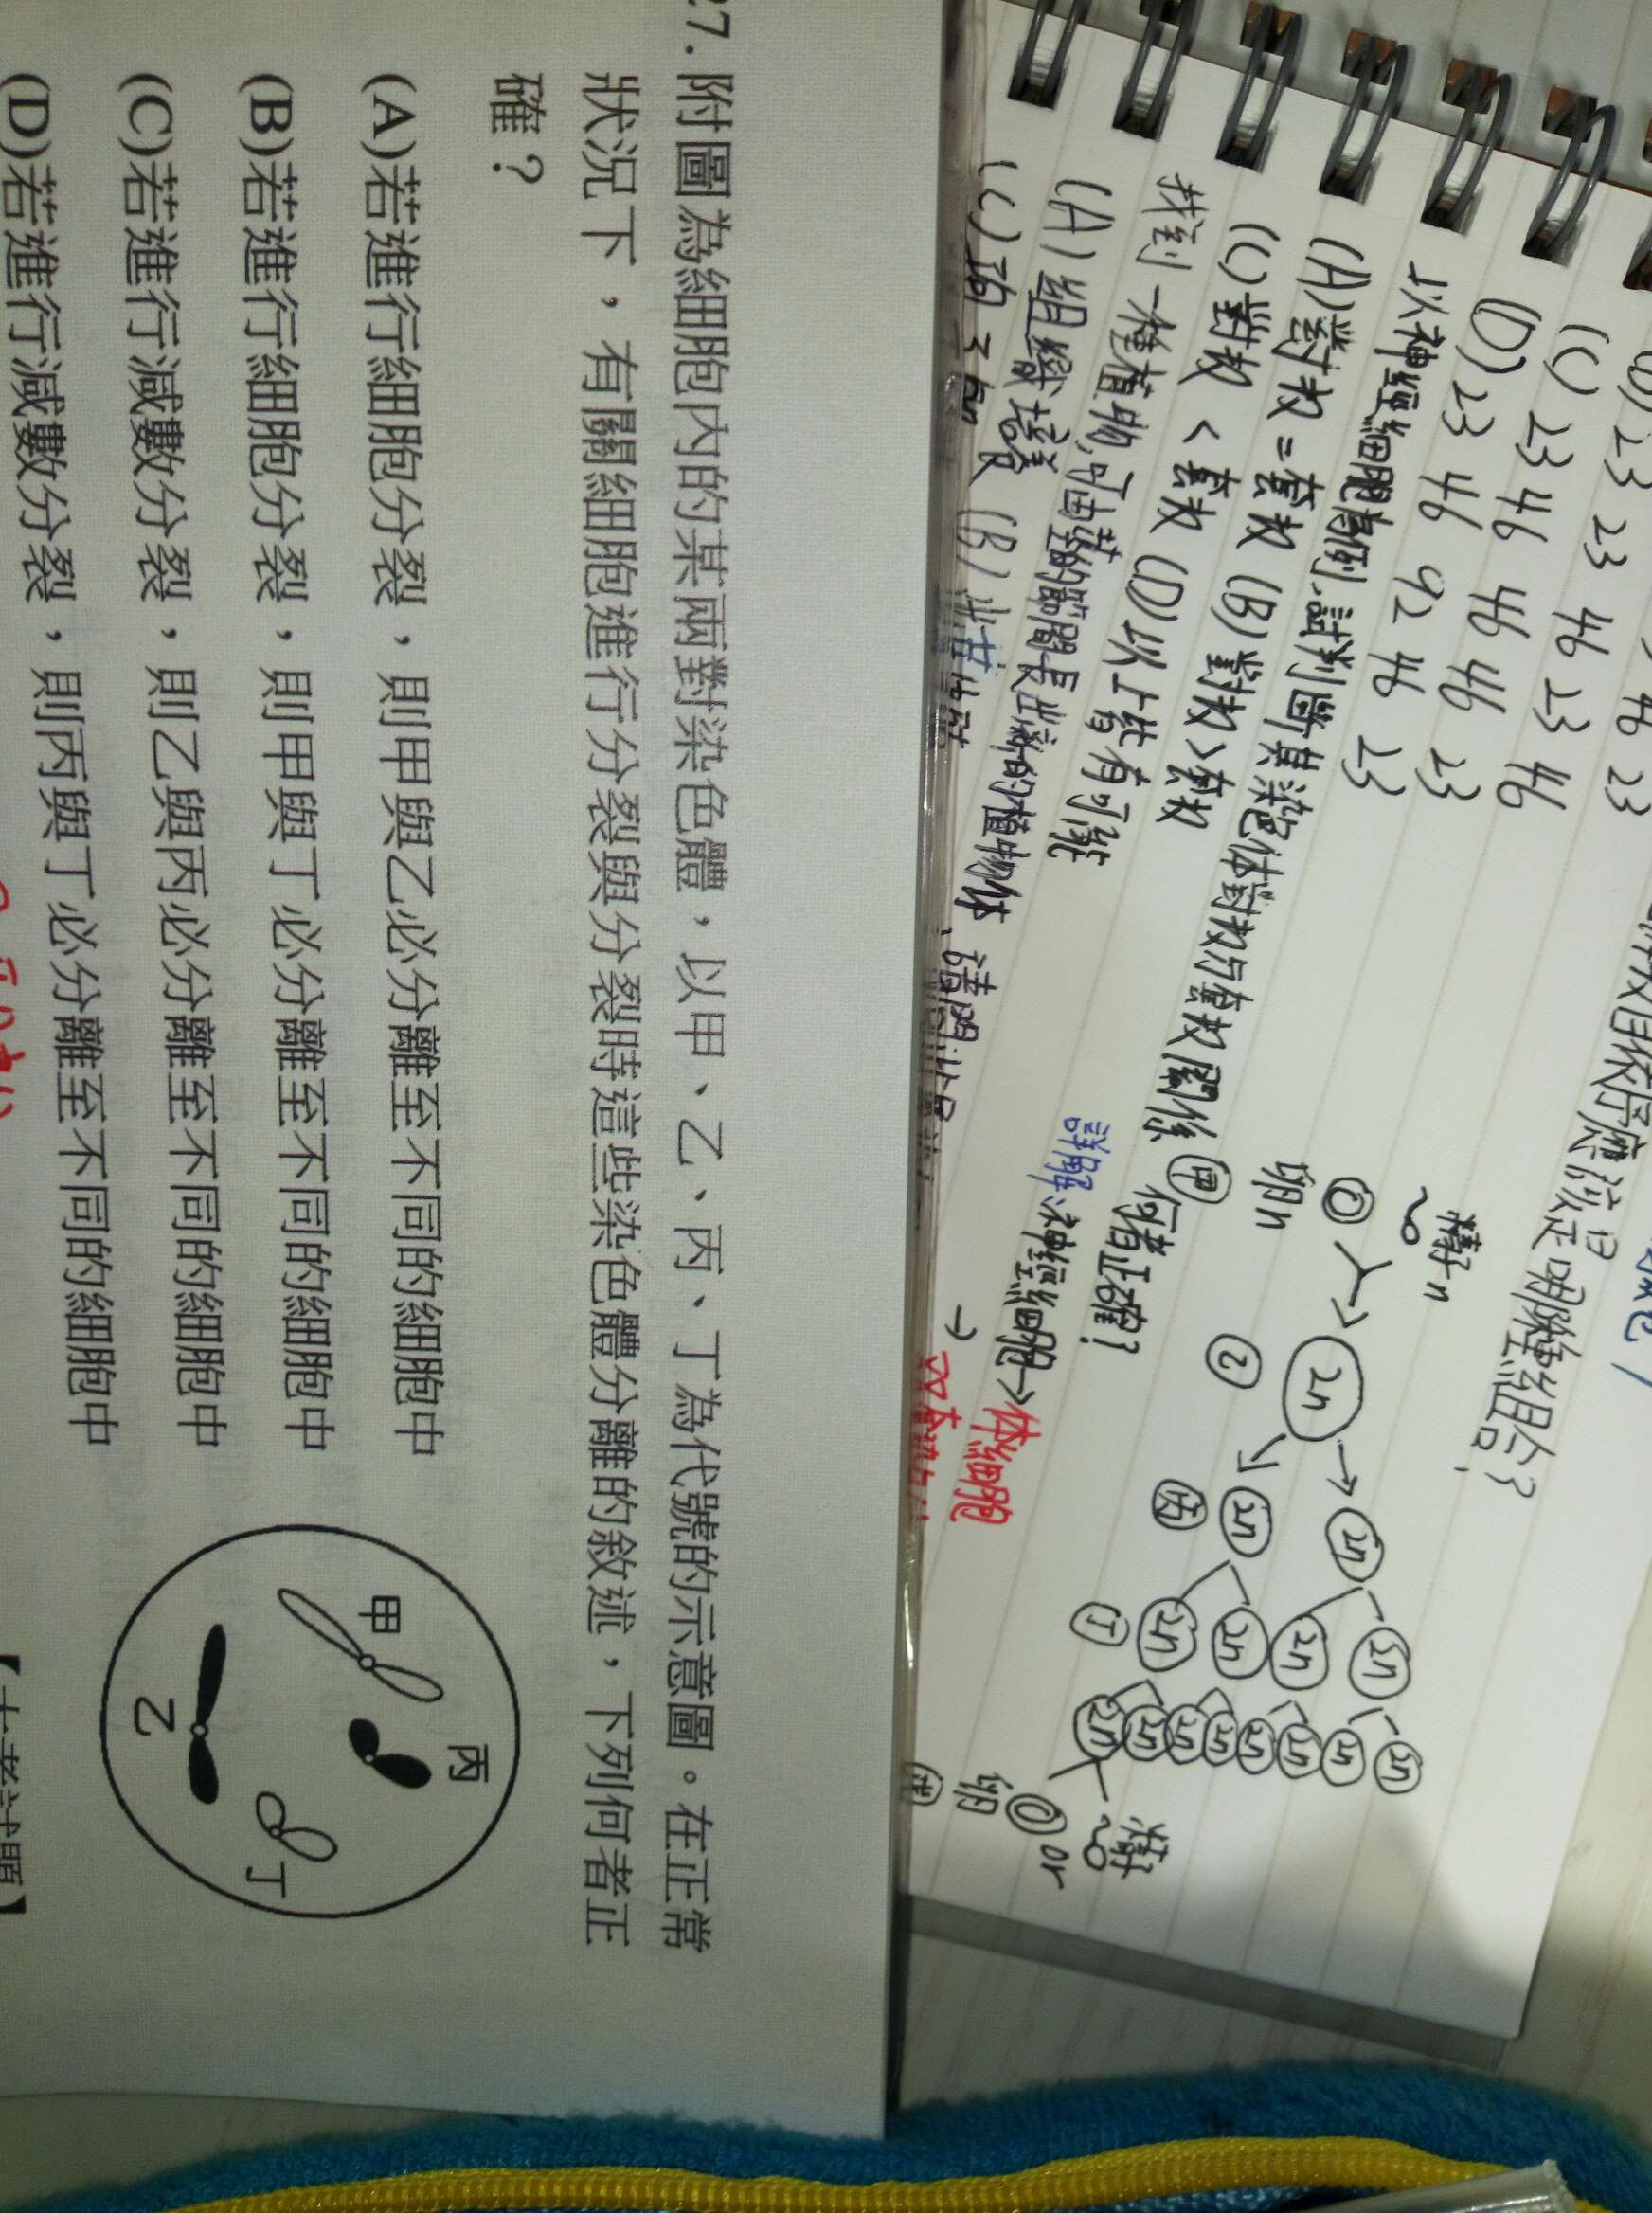 27. 附圖為細胞內的某兩對染色體，以甲、乙、丙、丁為代號的示意圖。在正常
狀況下，有關細胞進行分裂與分裂時這些染色體分離的敘述，下列何者正
確？
(A)若進行細胞分裂，則甲與乙必分離至不同的細胞中
(B)若進行細胞分裂，則甲與丁必分離至不同的細胞中
(C)若進行減數分裂，則乙與丙必分離至不同的細胞中
(D)若進行減數分裂，則丙與丁必分離至不同的細胞中
甲
丙
乙
丁
依序應該是哪種組合？
23 23 46 23
(C) 23 46 46 23 46
(D) 23 46 46 46 23
23 46 92 46 23
以神經細胞為例，試判斷其染色体對數與套數關係
(A)對數=套數 (B)對數>套數
(C)對數<套數 (D)以上皆有可能
找到一種植物，可由莖的節間長出新的植物体，請問
何者正確？
(A)組織培養 (B)
詳解：神經細胞→体細胞
→
精子n
卵n
甲
2n
乙
2n
2n
丙
2n
2n
2n
2n
丁
2n
2n
2n
2n
2n
2n
2n
2n
卵
or
精